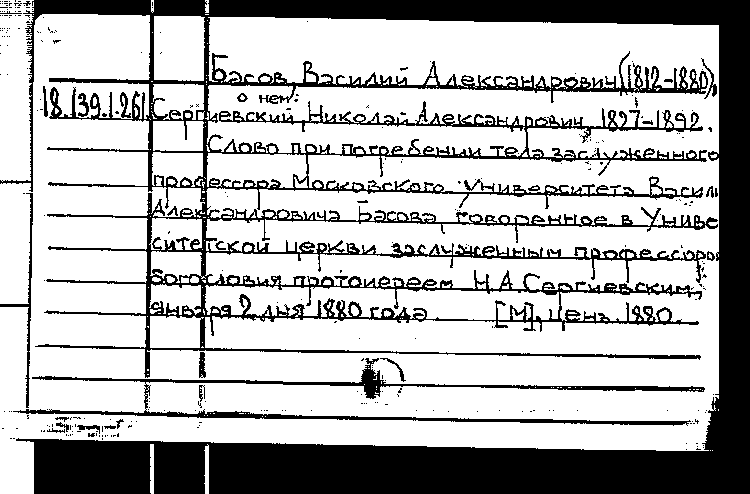 Басов, Василий Александрович (1812-1880).
о нем:
18.139.1.261 Сергиевский, Николай Александрович, 1827-1892.
Слово при погребении тела заслуженного
профессора Московского Университета Васили
Александровича Басова, говоренное в Униве
ситетской церкви заслуженным профессоро
богословия протоиереем Н.А.Сергиевским,
января 2 дня 1880 года. [М], ценз. 1880.